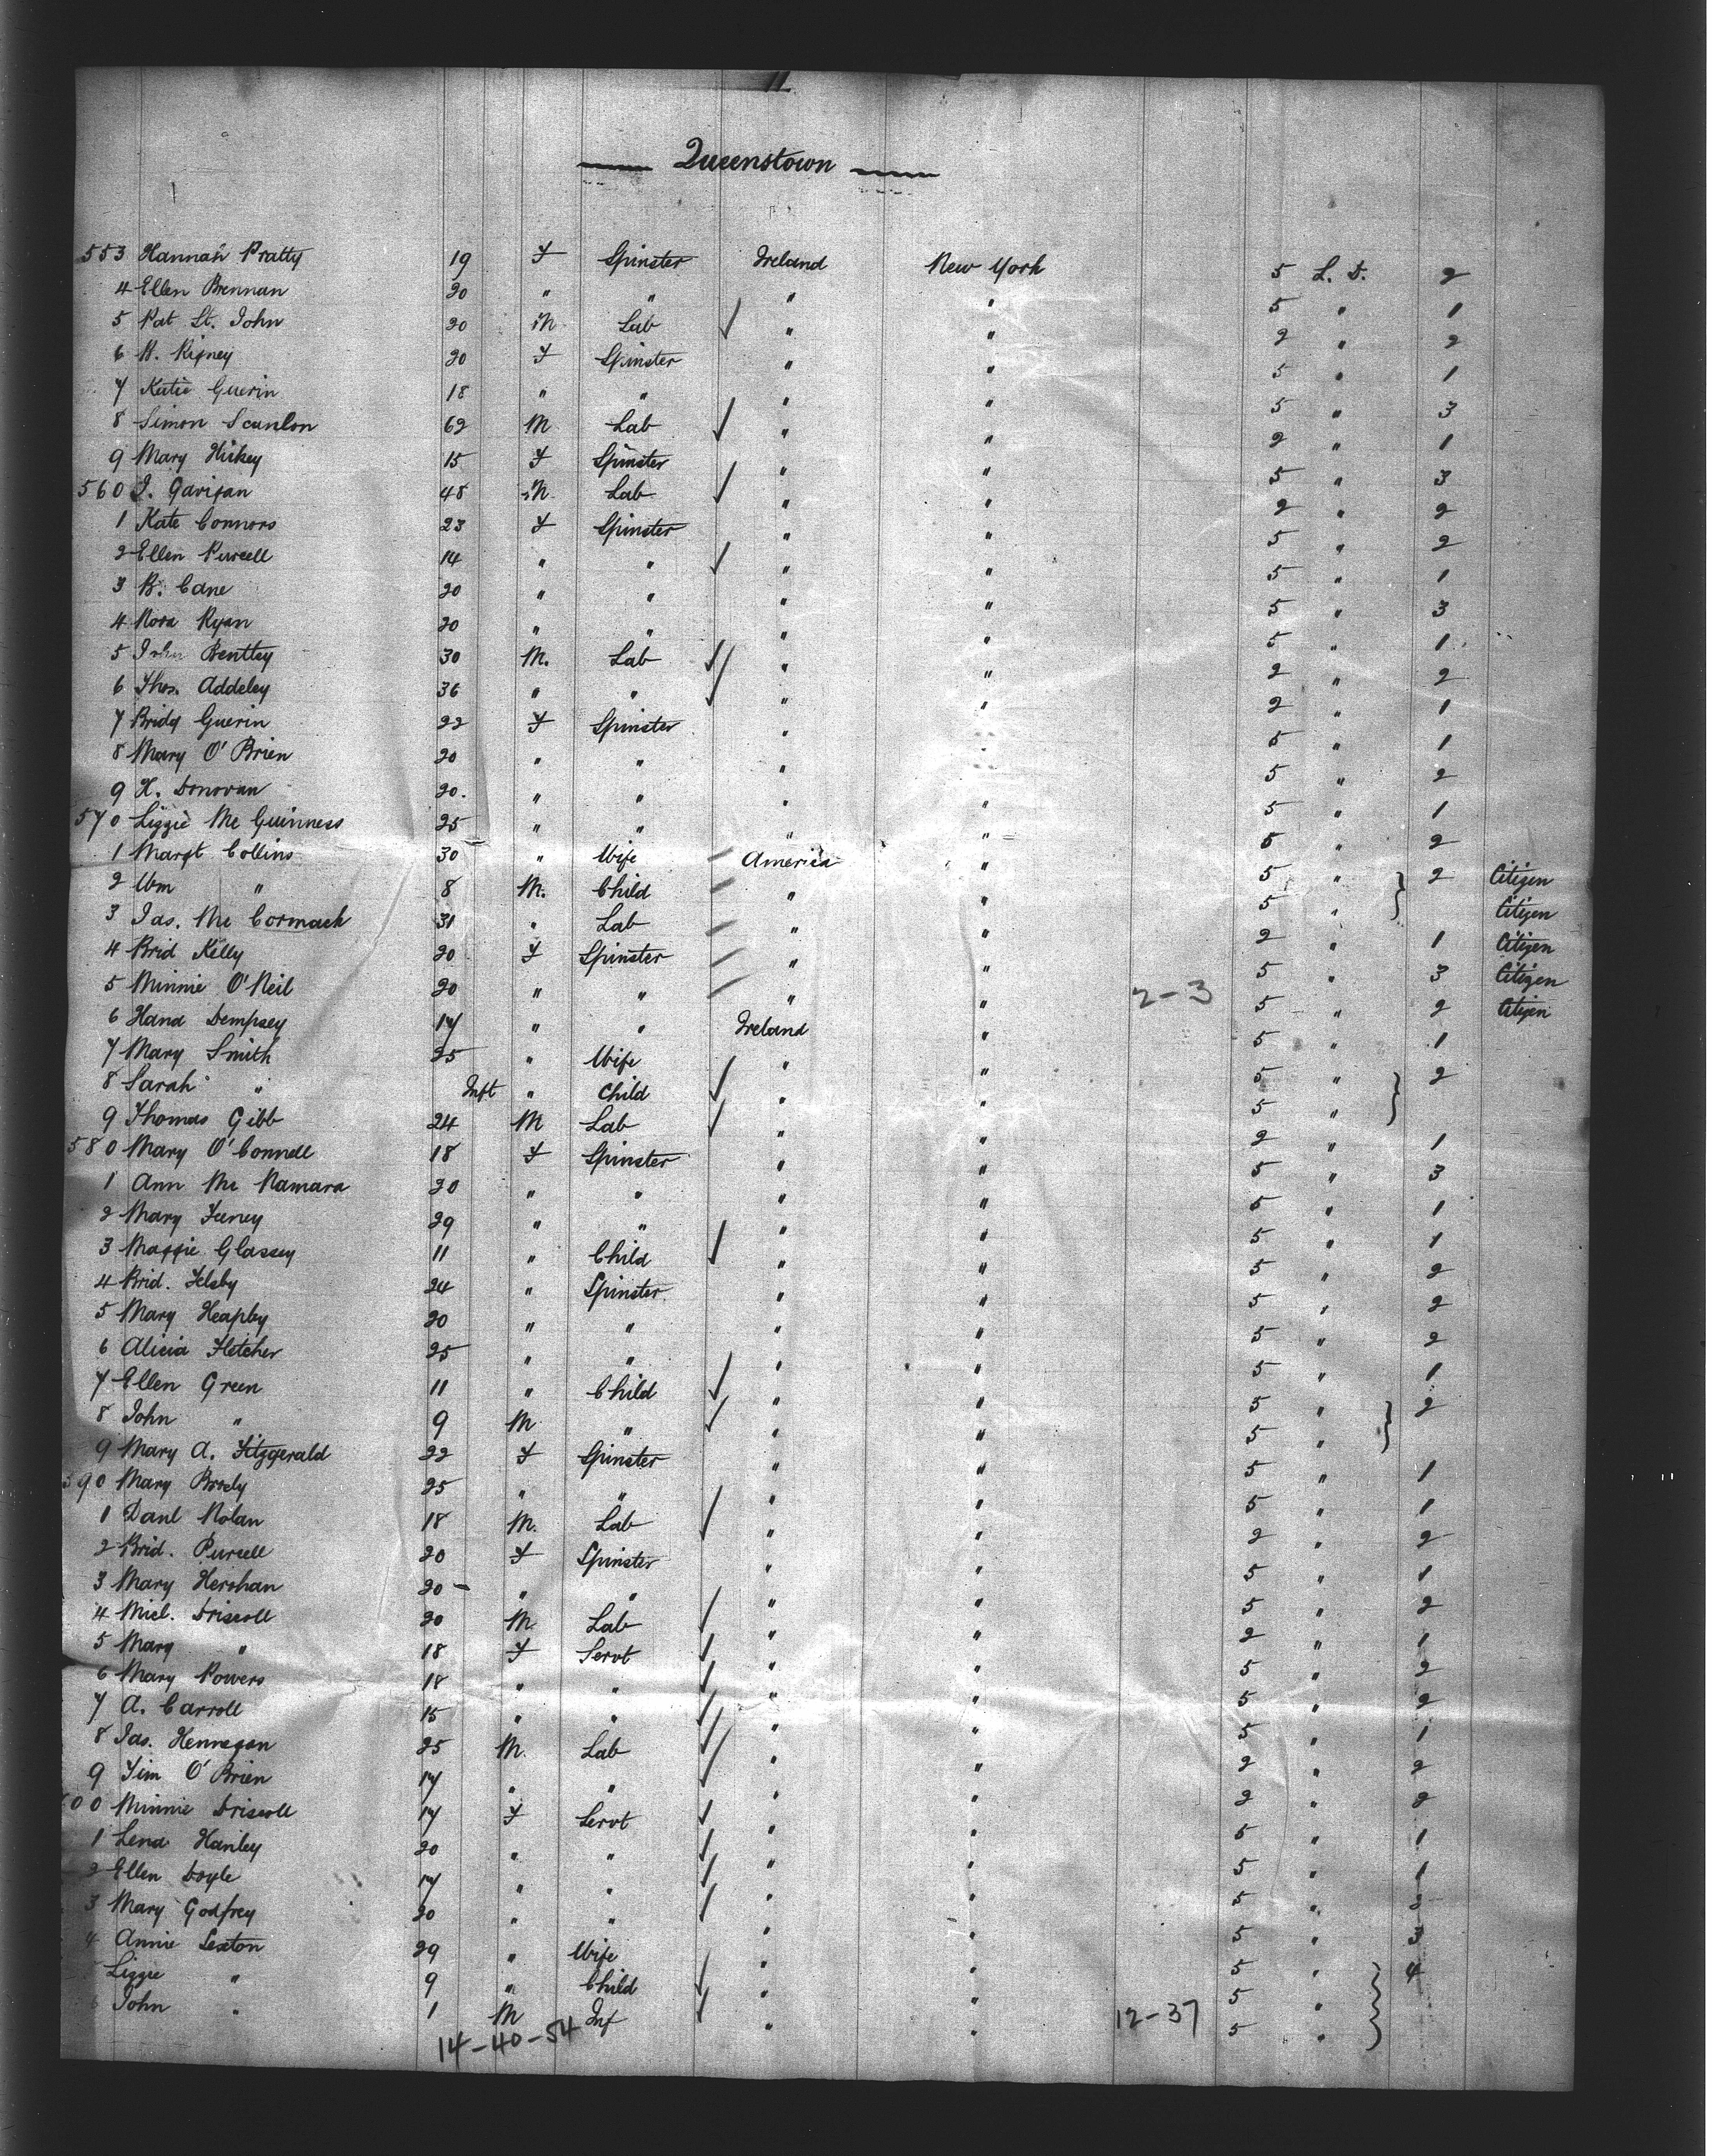 11
Queenstown
553 Hannah Pratty 19 F Spinster Ireland New York 5 L. D. 2
4 Ellen Brennan 20 " " " " 5 " 1
5 Pat St. John 20 M Lab " " 2 " 2
6 B. Rigney 20 F Spinster " " 5 " 1
7 Katie Guerin 18 " " " " 5 " 3
8 Simon Scanlon 62 M Lab " " 2 " 1
9 Mary Hickey 15 F Spinster " " 5 " 3
560 J. Garigan 48 M Lab " " 2 " 2
1 Kate Connors 23 F Spinster " " 5 " 2
2 Ellen Purcell 14 " " " " 5 " 1
3 B. Cane 20 " " " " 5 " 3
4 Nora Ryan 20 " " " " 5 " 1
5 John Bentley 30 M. Lab " " 2 " 2
6 Thos. Addeley 36 " " " " 2 " 1
7 Bridg Guerin 22 F Spinster " " 5 " 1
8 Mary O'Brien 20 " " " " 5 " 2
9 H. Donovan 20. " " " " 5 " 1
570 Lizzie Mc Guinness 25 " " " " 5 " 2
1 Margt Collins 30 " Wife America " 5 " 2 Citizen
2 Wm " 8 M. Child " " 5 " Citizen
3 Jas. Mc Cormack 31 " Lab " " 2 " 1 Citizen
4 Brid Kelly 20 F Spinster " " 5 " 3 Citizen
5 Minnie O'Neil 20 " " " " 2-3 5 " 2 Citizen
6 Hana Dempsey 17 " " Ireland " 5 " 1
7 Mary Smith 25 " Wife " " 5 " 2
8 Sarah " Inft " Child " " 5 "
9 Thomas Gibb 24 M Lab " " 2 " 1
580 Mary O'Connell 18 F Spinster " " 5 " 3
1 Ann Mc Namara 20 " " " " 5 " 1
2 Mary Feeney 29 " " " " 5 " 1
3 Maggie Glassey 11 " Child " " 5 " 2
4 Brid. Felsby 24 " Spinster " " 5 " 2
5 Mary Heapley 20 " " " " 5 " 2
6 Alicia Fletcher 25 " " " " 5 " 1
7 Ellen Green 11 " Child " " 5 " 2
8 John " 9 M " " " 5 "
9 Mary A. Fitzgerald 22 F Spinster " " 5 " 1
590 Mary Brody 25 " " " " 5 " 1
1 Danl Nolan 18 M. Lab " " 2 " 2
2 Brid. Purcell 20 F Spinster " " 5 " 1
3 Mary Hershan 20 " " " " 5 " 2
4 Micl. Driscoll 20 M. Lab " " 2 " 1
5 Mary " 18 F Servt " " 5 " 2
6 Mary Powers 18 " " " " 5 " 2
7 A. Carroll 15 " " " " 5 " 1
8 Jas. Hennegan 25 M. Lab " " 2 " 2
9 Tim O'Brien 17 " " " " 2 " 2
600 Minnie Driscoll 17 F Servt " " 5 " 1
1 Lena Hanley 20 " " " " 5 " 1
2 Ellen Doyle 17 " " " " 5 "
3 Mary Godfrey 20 " " " " 5 " 3
4 Annie Sexton 29 " Wife " " 5 " 4
Lizzie " 9 " Child " " 5 "
John " 1 M Inf " " 12-37 5 "
14-40-54